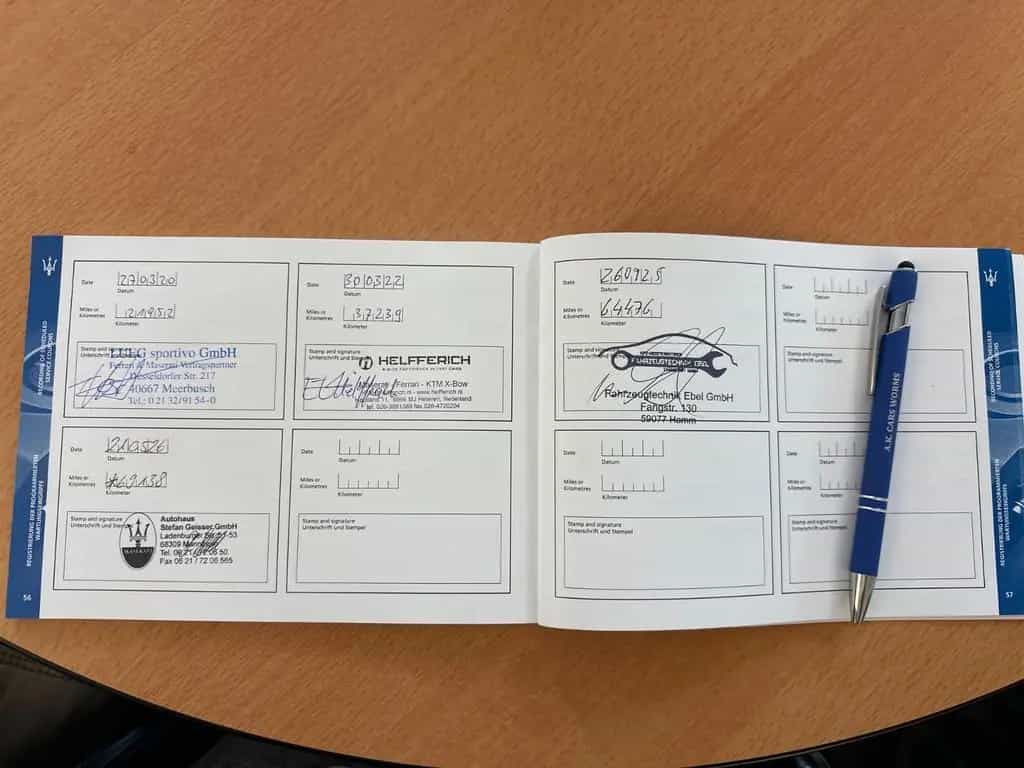 RECORDING OF SCHEDULED
SERVICE COUPONS
REGISTRIERUNG DER PROGRAMMIERTEN
WARTUNGSEINGRIFFE
56
Date 270320
Datum
Miles or
Kilometres
Kilometer
Stamp and signature
Unterschrift und
sportivo GmbH
Ferrari & Maserati Vertragspartner
Düsseldorfer Str. 217
40667 Meerbusch
Tel.: 0 21 32/91 54-0
Date 300322
Datum
Miles or
Kilometres 37239
Kilometer
Stamp and signature
Unterschrift und
HELFFERICH
Maserati - Ferrari - KTM X-Bow
Date
Datum
Miles or
Kilometres
Kilometer
MASERATI
Autohaus
Stefan Geisser GmbH
Ladenburger Str. 51-53
68309 Mannheim
Tel. 06 21 / 72 06 50
Fax 06 21 / 72 06 565
Stamp and signature
Unterschrift und
Date
Datum
Miles or
Kilometres
Kilometer
Stamp and signature
Unterschrift und Stempel
Date 260925
Datum
Miles or
Kilometres 64476
Kilometer
Stamp and signature
FAHRZEUGTECHNIK EBEL
Fahrzeugtechnik Ebel GmbH
Fangstr. 130
59077 Hamm
Date
Datum
Miles or
Kilometres
Kilometer
Stamp and signature
Unterschrift und Stempel
Date
Datum
Miles or
Kilometres
Kilometer
Stamp and signature
Unterschrift und Stempel
Date
Datum
Miles or
Kilometres
Kilometer
Stamp and signature
Unterschrift und Stempel
A.K. CARS WORMS
RECORDING OF SCHEDULED
SERVICE COUPONS
REGISTRIERUNG DER PROGRAMMIERTEN
WARTUNGSEINGRIFFE
57